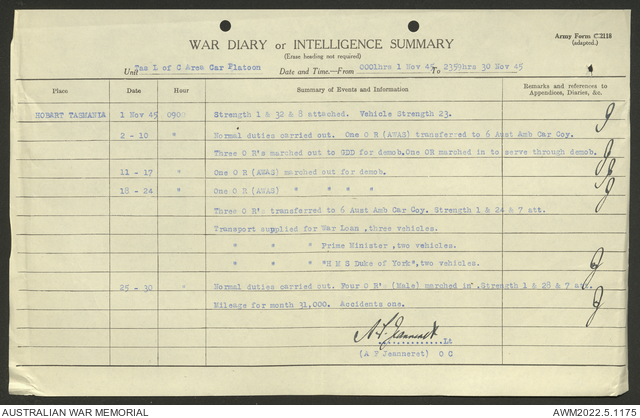 Army Form C.2118
(adapted.)
WAR DIARY or INTELLIGENCE SUMMARY
(Erase heading not required)
Unit Tas L of C Area Car Platoon Date and Time.—From 0001hrs 1 Nov 45 To 2359hrs 30 Nov 45
Place Date Hour Summary of Events and Information Remarks and references to Appendices, Diaries, &c.
HOBART TASMANIA 1 Nov 45 0900 Strength 1 & 32 & 8 attached. Vehicle Strength 23.
2 - 10 " Normal duties carried out. One O R (AWAS) transferred to 6 Aust Amb Car Coy.
Three O R's marched out to GDD for demob.One OR marched in to serve through demob.
11 - 17 " One O R (AWAS) marched out for demob.
18 - 24 " One O R (AWAS) " " " "
Three O R's transferred to 6 Aust Amb Car Coy. Strength 1 & 24 & 7 att.
Transport supplied for War Loan ,three vehicles.
" " " Prime Minister ,two vehicles.
" " " "H M S Duke of York",two vehicles.
25 - 30 " Normal duties carried out. Four O R's (Male) marched in . Strength 1 & 28 & 7 att.
Mileage for month 31,000. Accidents one.
A F Jeanneret Lt
(A F Jeanneret) O C
AUSTRALIAN WAR MEMORIAL AWM2022.5.1175